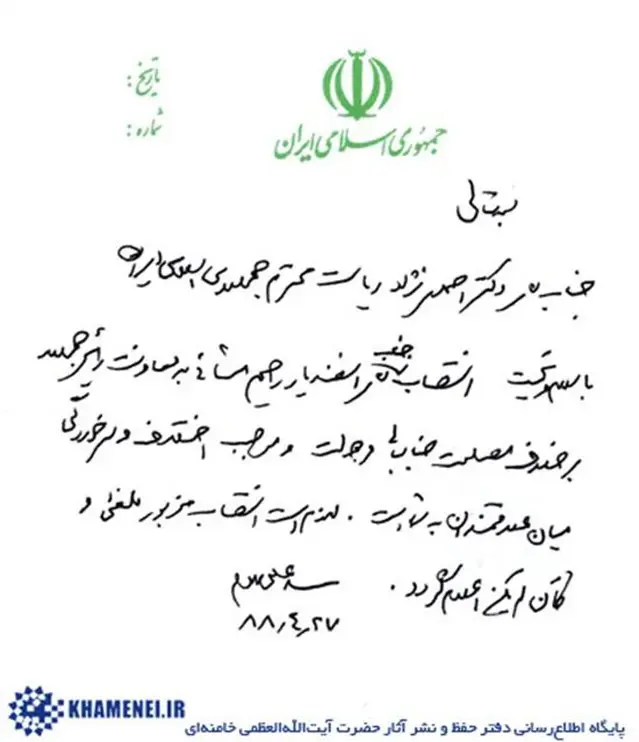 تاریخ :
شماره :
جمهوری اسلامی ایران
بسمه تعالی
جناب آقای دکتر احمدی نژاد ریاست محترم جمهوری اسلامی ایران
با سلام و تحیت انتصاب جناب آقای اسفندیار رحیم مشائی به معاونت رئیس جمهور
بر خلاف مصلحت جنابعالی و دولت و موجب اختلاف و سرخوردگی
میان علاقمندان به شما است . لازم است انتصاب مزبور ملغی و
کان لم یکن اعلام گردد .
سید علی
۸۸٫۴٫۲۷
KHAMENEI.IR
پایگاه اطلاع‌رسانی دفتر حفظ و نشر آثار حضرت آیت‌الله‌العظمی خامنه‌ای